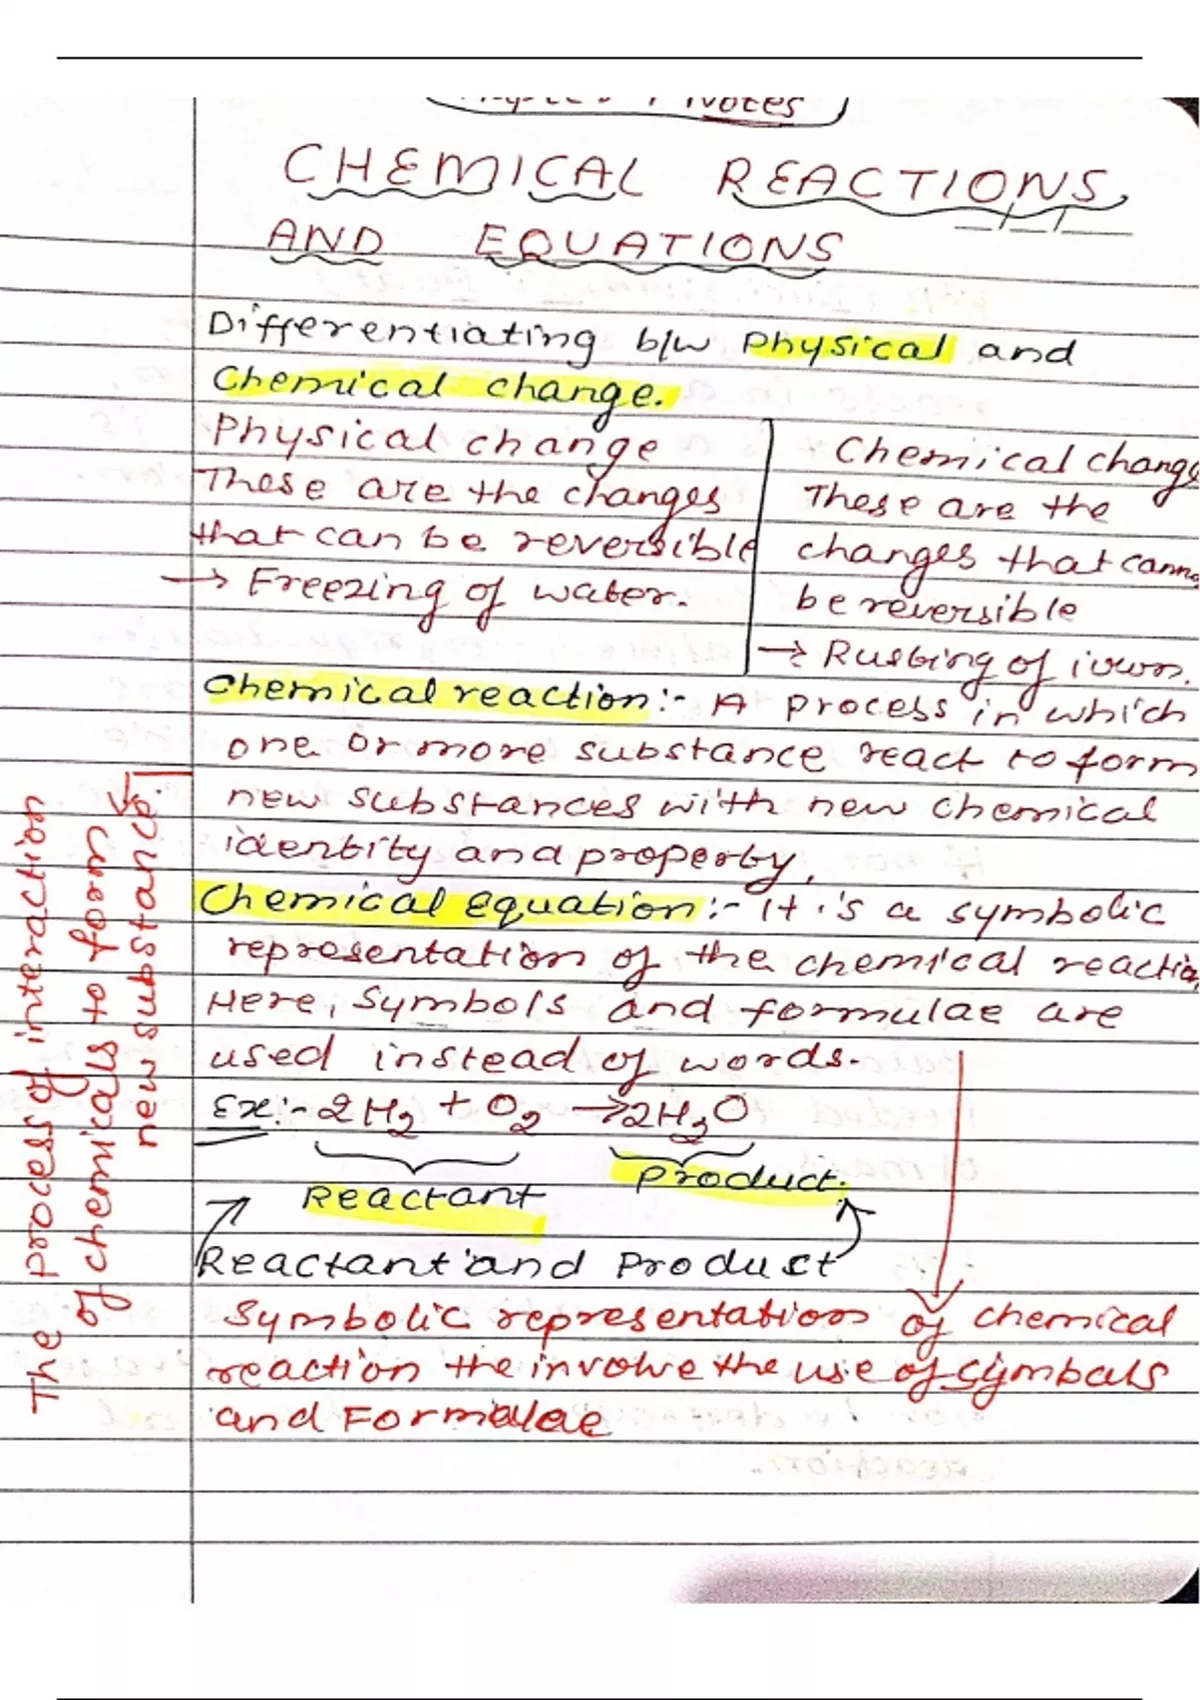 Notes
CHEMICAL REACTIONS
AND EQUATIONS
Differentiating b/w Physical and
Chemical change.
Physical change
These are the changes
that can be reversible
→ Freezing of water.
Chemical change
These are the
changes that
be reversible
→ Rusting of iron.
Chemical reaction:- A process in which
one or more substance react to form
new substances with new chemical
identity and property.
Chemical Equation:- it is a symbolic
representation of the chemical
Here, Symbols and formulae are
used instead of words.
Ex:- 2H₂ + O₂ → 2H₂O
Reactant Product.
Reactant and Product
Symbolic representation of chemical
reaction the involve the use of symbals
and Formulae
The process of interaction
of chemicals to form
new substance.